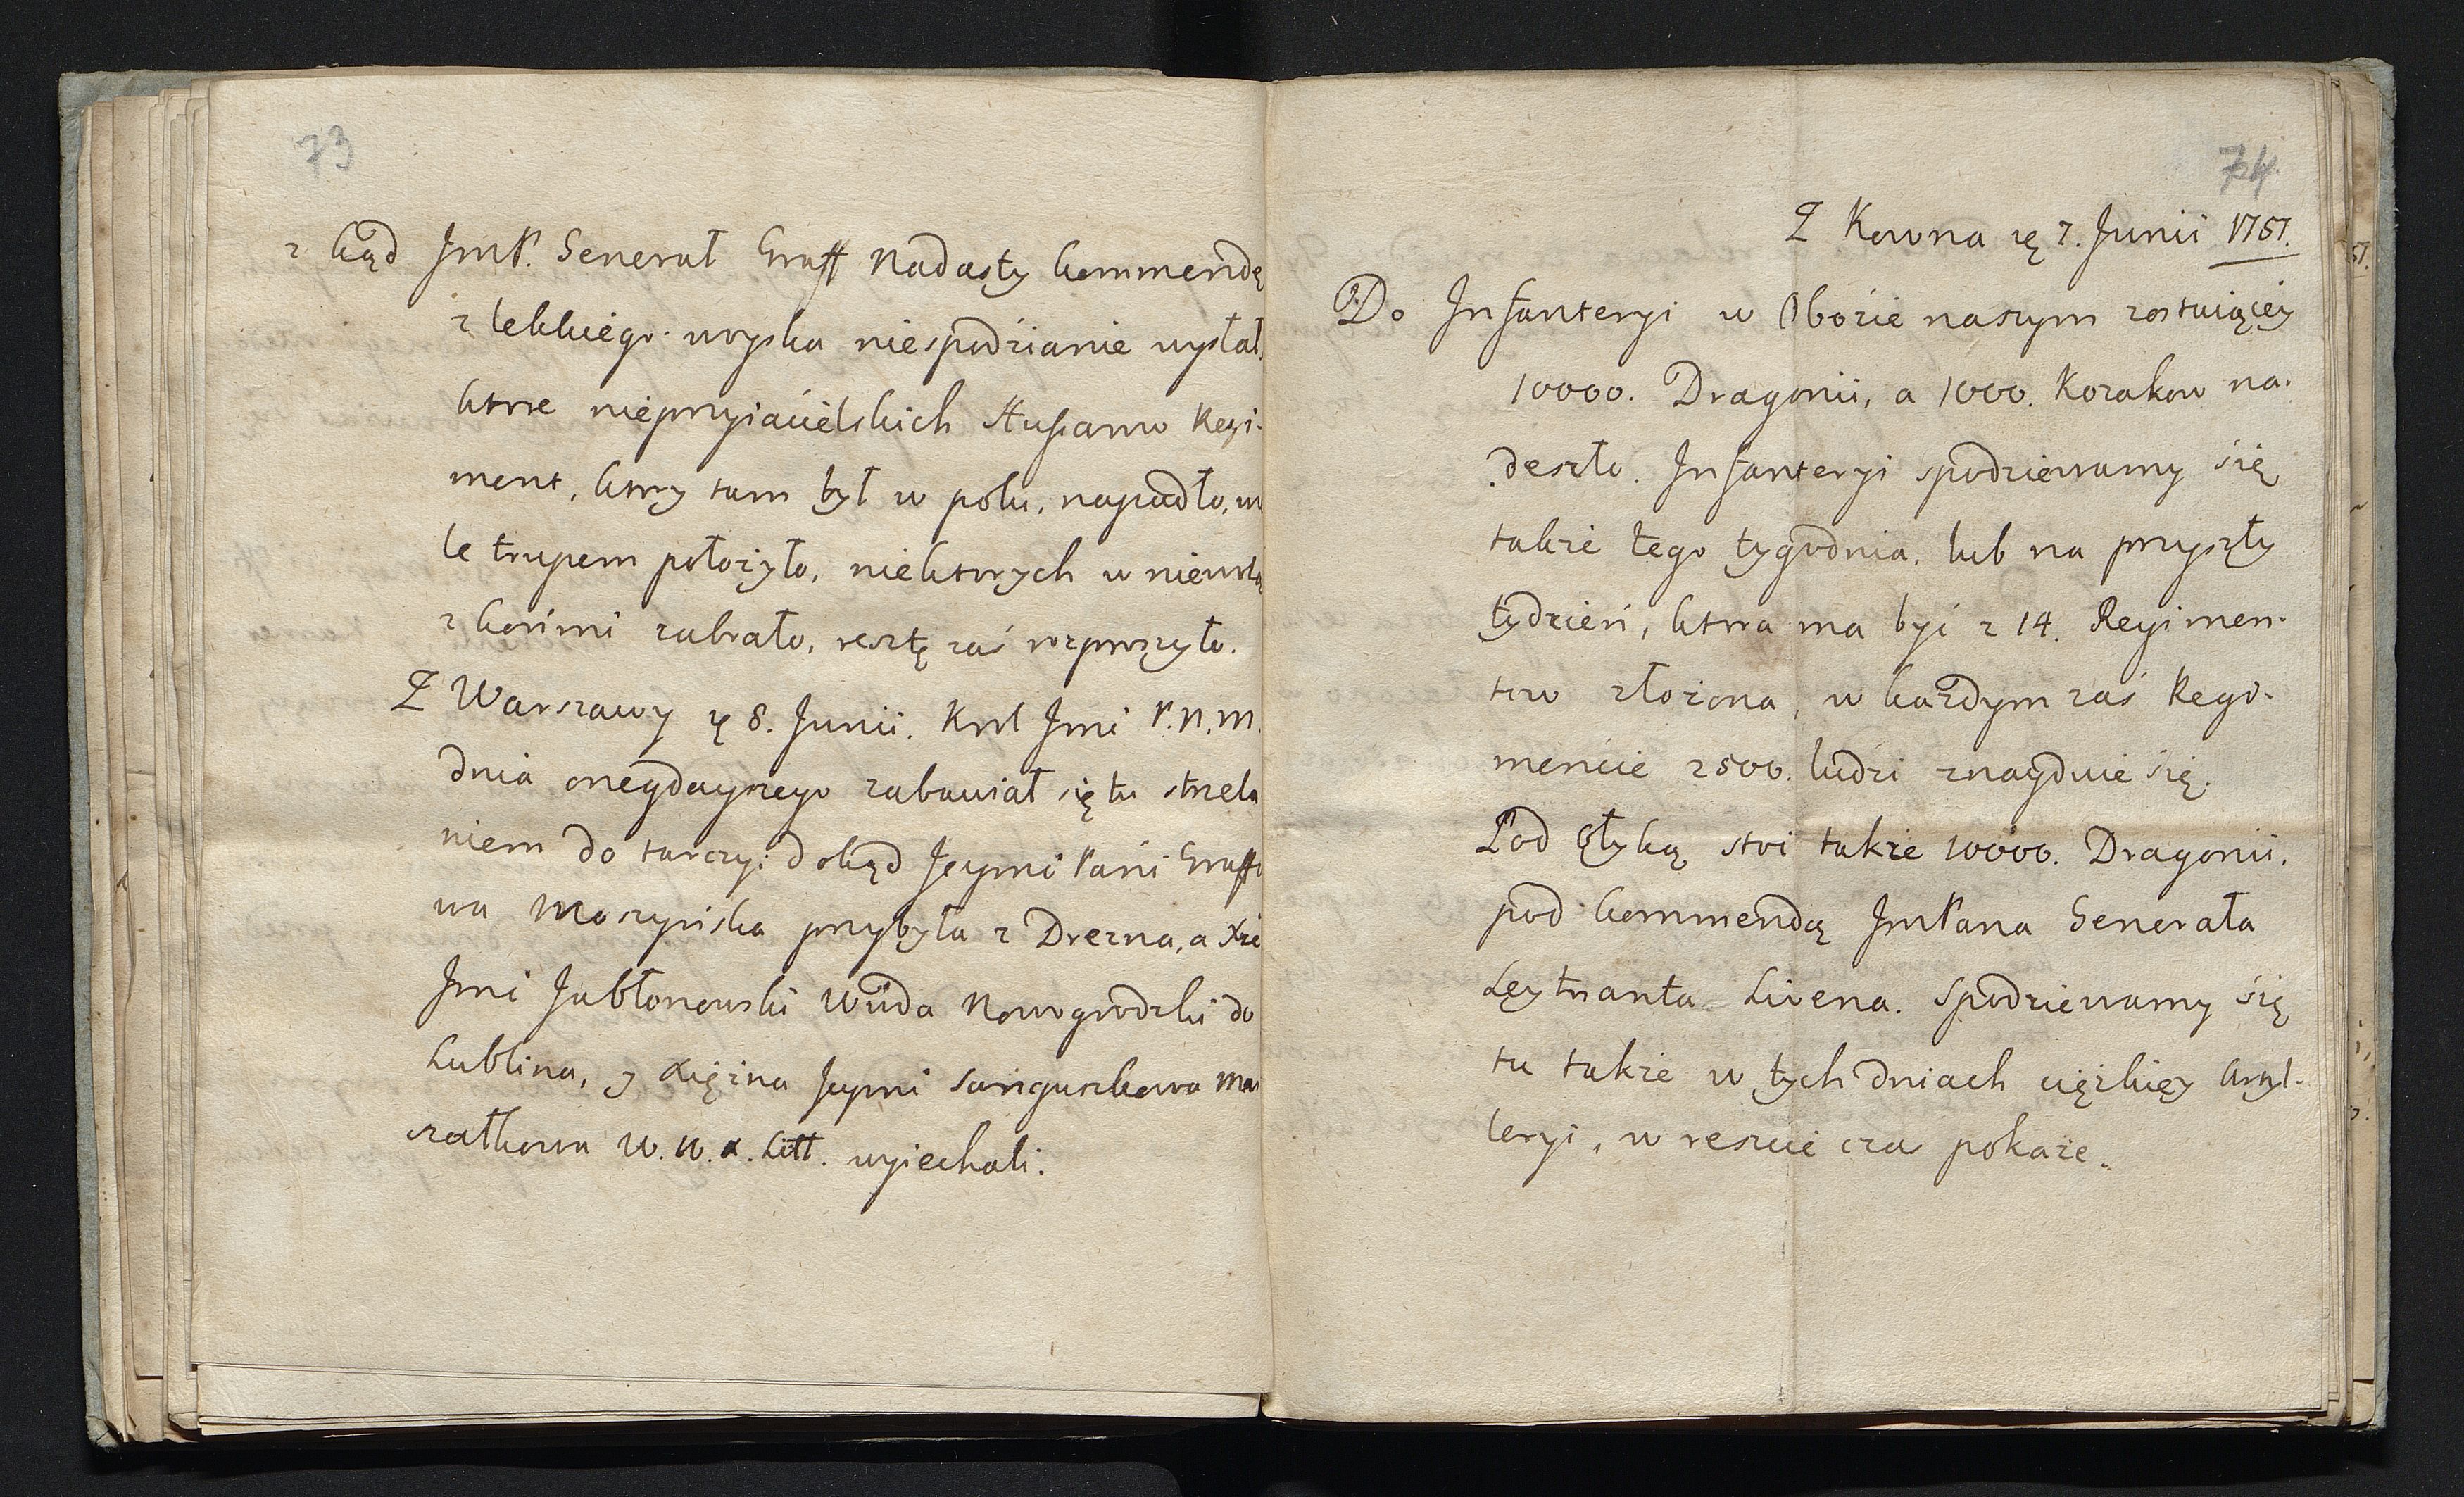 73
z kąd JmP. Generał Graff Nadasty kommendę
z lekkiego woyska niespodzianie wysłał,
ktore nieprzyiacielskich Hussarow Regi-
ment, ktory tam był w polu, napadło, w
le trupem położyło, niektorych w niewolą
z końmi zabrało, resztę zaś rozproszyło.
Z Warszawy ię 8. Junii. Krol Jmć P.N.M.
dnia onegdayszego zabawiał się tu strzela
niem do tarczy: dokąd Jeymć Pani Graffo
wa Moszyńska przybyła z Drezna, a Xże
Jmć Jabłonowski Wdda Nowogrodzki do
Lublina, y Xiężna Jeymć Sanguszkowa Mar
szałkowa W. W. X. Litt. wyiechali.
74
Z Kowna ię 7. Junii 1757.
Do Infanteryi w Obozie naszym zostaiącey
10000. Dragonii, a 1000. Kozakow na-
deszło. Infanteryi spodziewamy się
także tego tygodnia, lub na przyszły
tydzień, ktora ma być z 14. Regimen-
tow złożona, w każdym zaś Regi-
mencie 2500. ludzi znayduie się.
Pod Łyką stoi także 10000. Dragonii,
pod kommendą JmPana Generała
Leytnanta Livena. Spodziewamy się
tu także w tych dniach ciężkiey Artyl-
leryi, w reszcie czas pokaże.